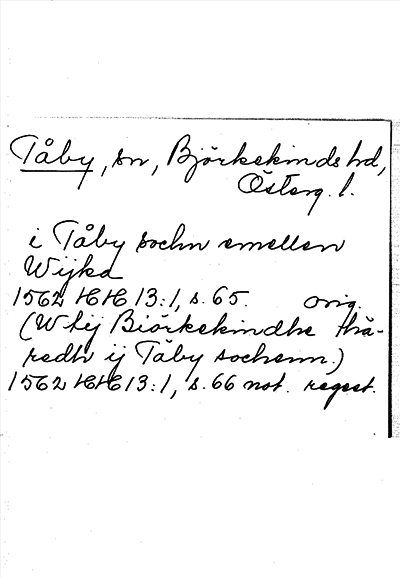 Tåby, sn, Björkekinds hd,
Österg. l.
i Tåby sochn emellan
Wijka
1562 HH 13:1, s. 65. orig.
(W hij Biörkekindhe hä-
redh ij Tåby sochenn.)
1562 HH 13:1, s. 66 not. regest.